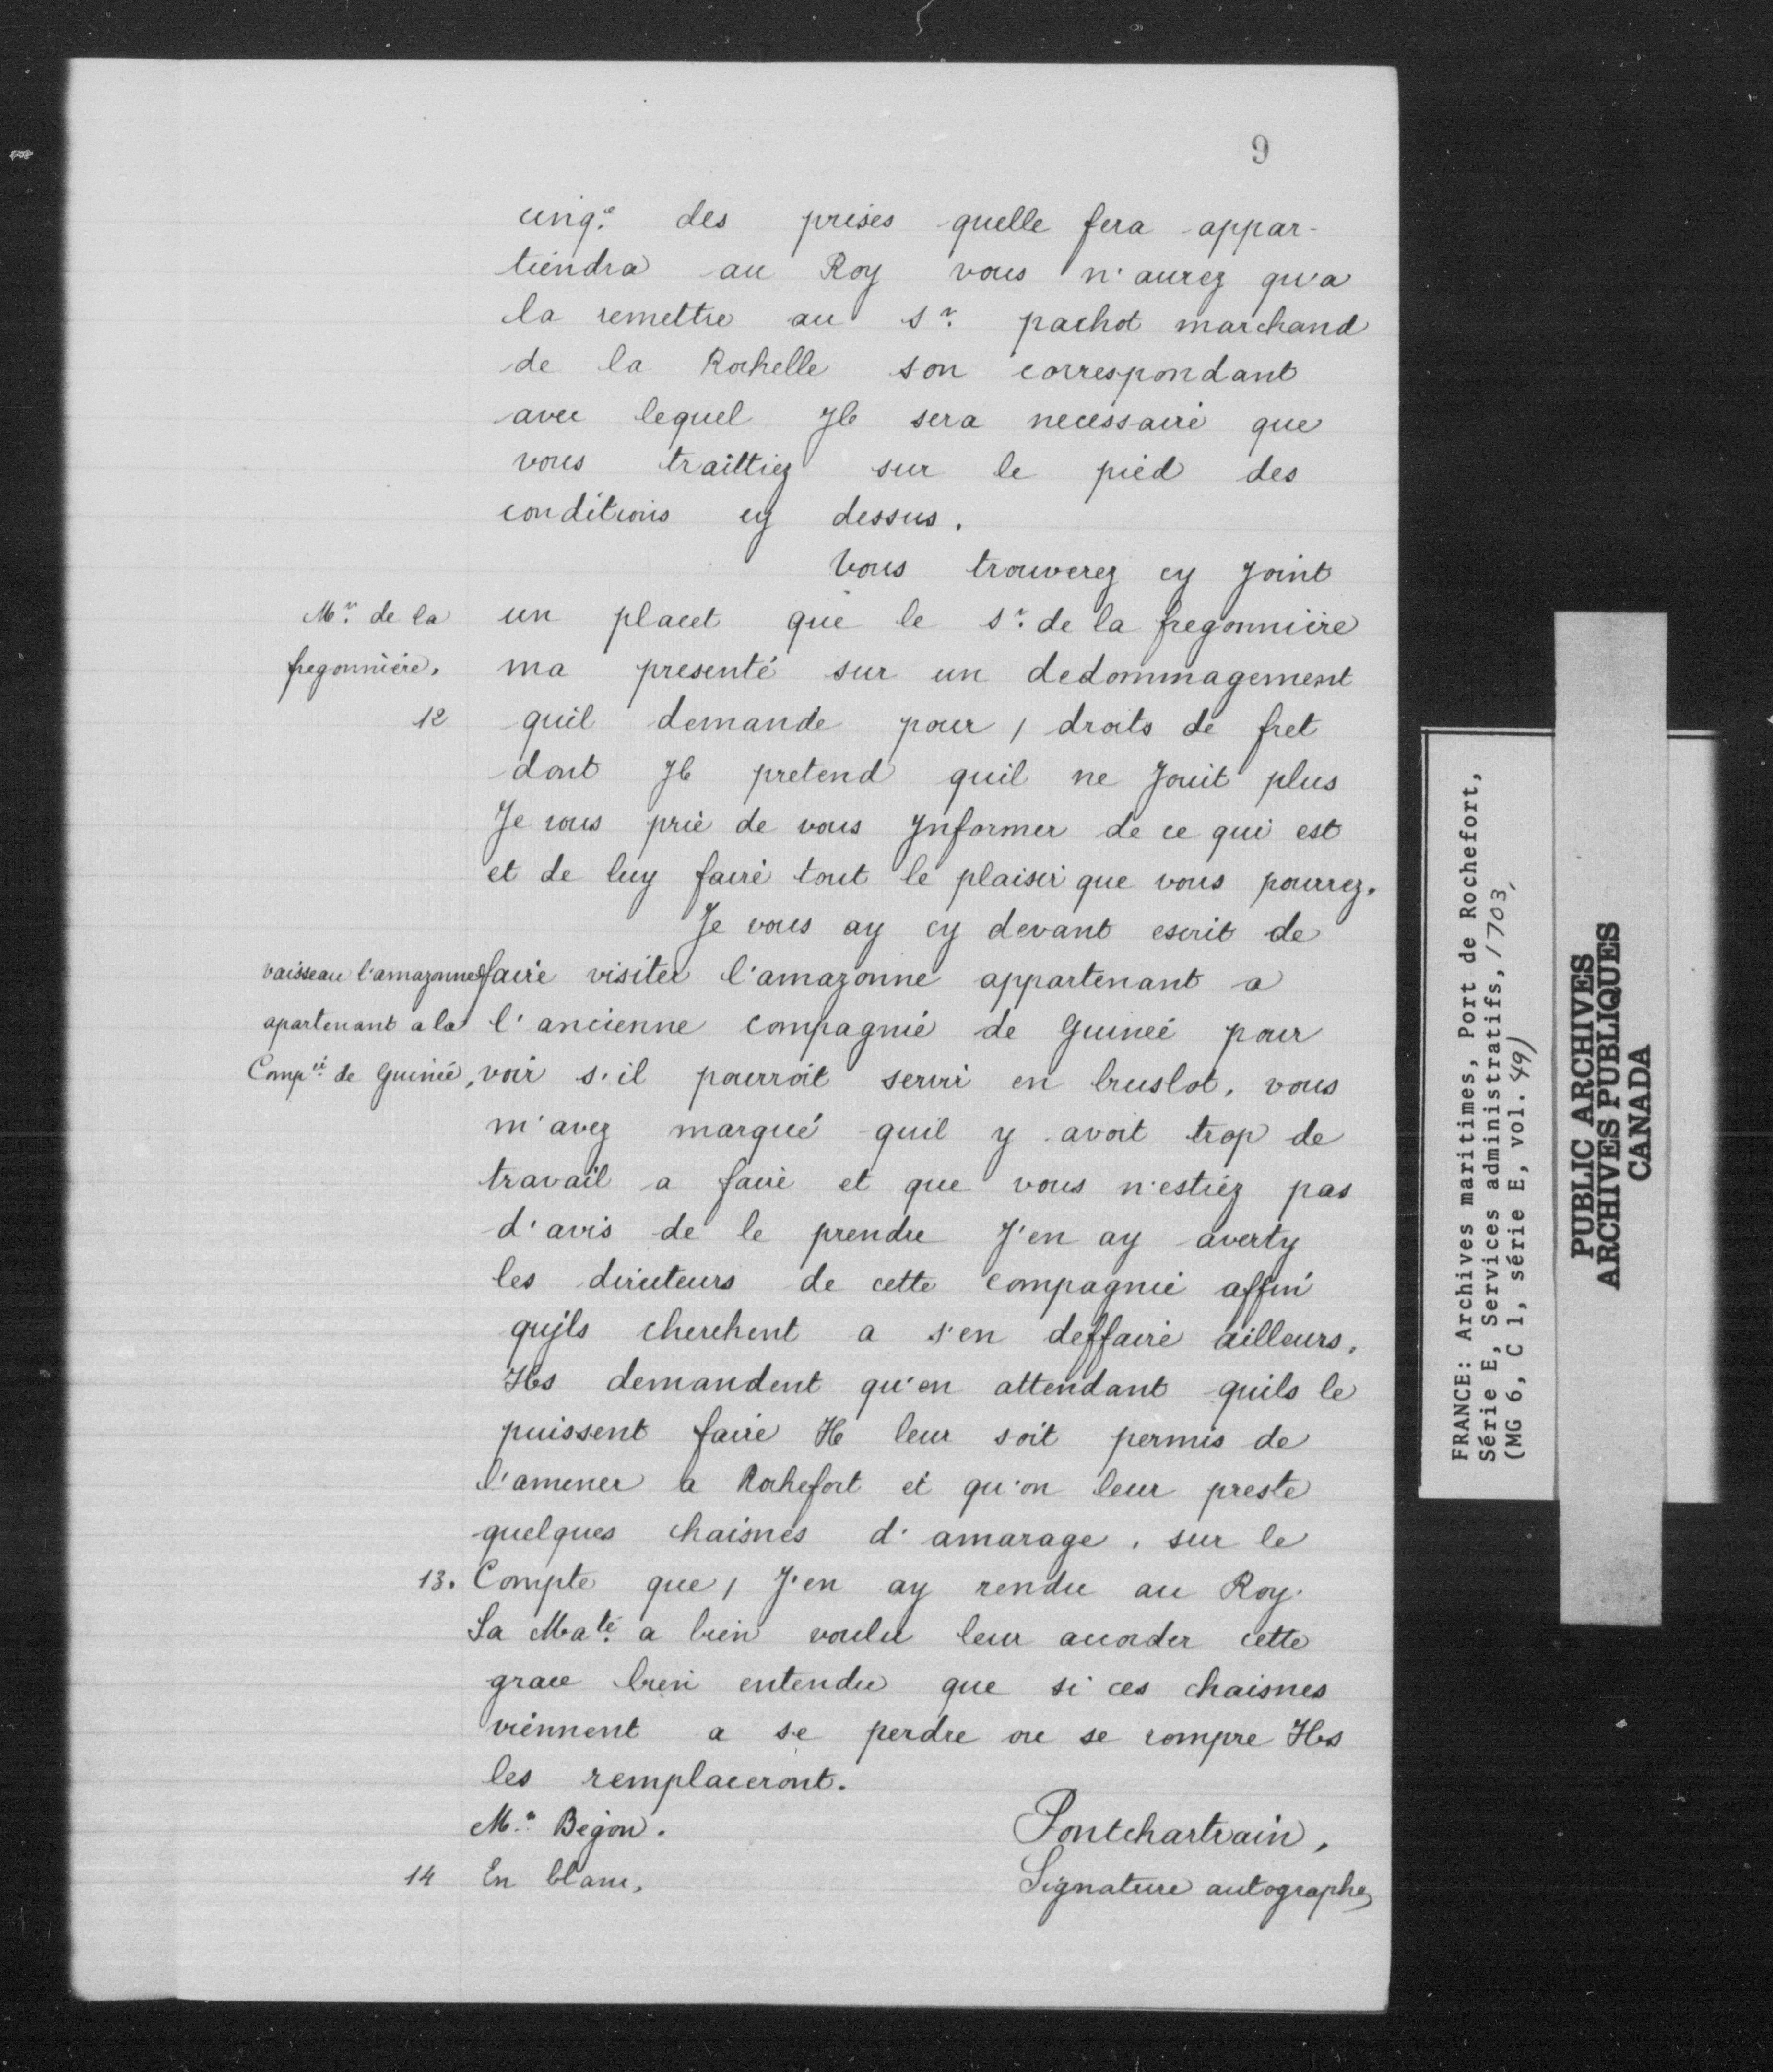 9
cinq.e des prises quelle fera appar-
tiendra au Roy vous n'aurez qu'a
la remettre au s.r pachot marchand
de la Rochelle son correspondant
avec lequel Jl sera necessaire que
vous traittiez sur le pied des
conditions cy dessus.
Vous trouverez cy Joint
M.r de la
fregonnière.
un placet que le s.r de la fregonnière
ma presenté sur un dedommagement
12
quil demande pour / droits de fret
dont Jl pretend quil ne Jouit plus
Je vous prie de vous ynformer de ce qui est
et de luy faire tout le plaisir que vous pourrez.
Je vous ay cy devant escrit de
vaisseau l'amazonne
apartenant a la
Comp.ie de Guinée,
faire visiter l'amazonne appartenant a
l'ancienne compagnie de Guineé pour
voir s'il pourroit servir en bruslot, vous
m'avez marqué quil y avoit trop de
travail a faire et que vous n'estiez pas
d'avis de le prendre J'en ay averty
les directeurs de cette compagnie affin
qujls cherchent a s'en deffaire ailleurs.
Jls demandent qu'en attendant quils le
puissent faire Jl leur soit permis de
l'amener a Rochefort et qu'on leur preste
quelques chaisnes d'amarage, sur le
13. Compte que / J'en ay rendu au Roy.
Sa Ma.té a bien voulu leur accorder cette
grace bien entendu que si ces chaisnes
viennent a se perdre ou se rompre Jls
les remplaceront.
M.r Begon.
Pontchartrain,
14 En blanc.
Signature autographe
FRANCE: Archives maritimes, Port de Rochefort,
Série E, Services administratifs, 1703,
(MG 6, C 1, série E, vol. 49)
PUBLIC ARCHIVES
ARCHIVES PUBLIQUES
CANADA